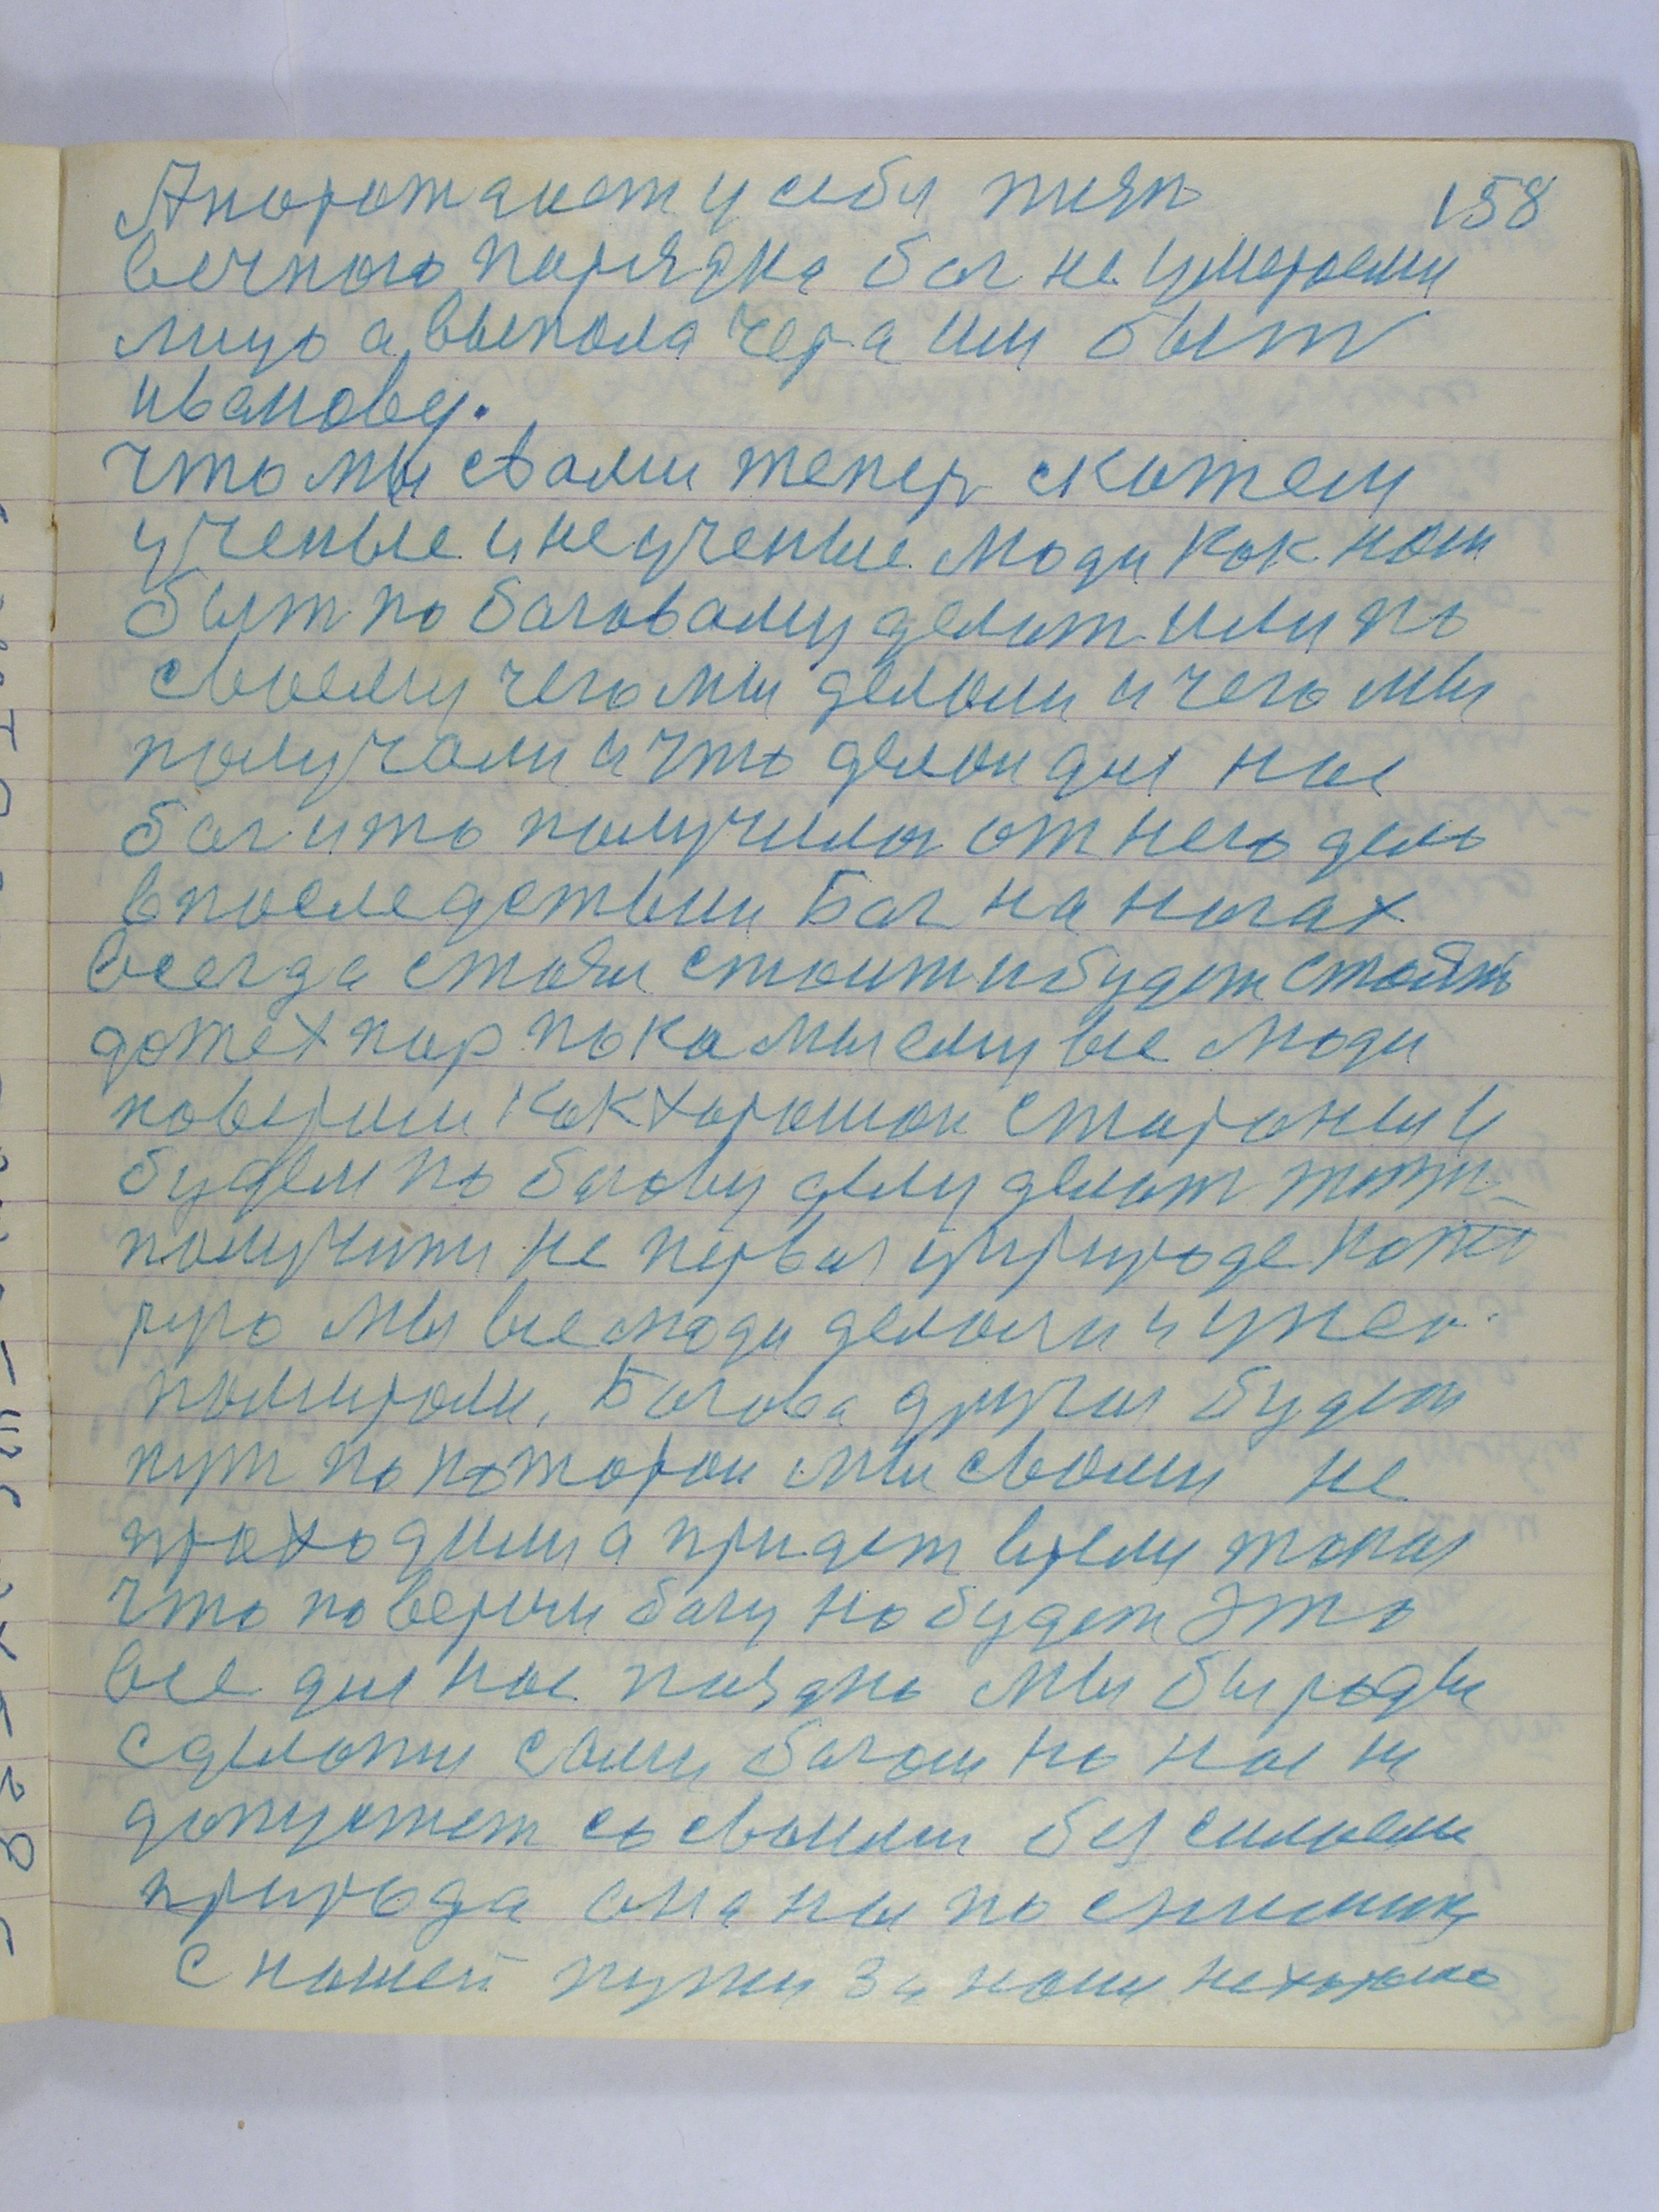 158
А порождает у себя
вечного порядка бог не умераеми
лицо а выпола чера им быт
иванову.
что мы свами тепер скажем
ученые и неученые люди как нам
быт по боговаму делат или по
своему чего мы делали и чего мы
получали и что делаи для нас
бог и што получилос от него дело
впоследствии Бог на ногах
всегда стоял стоит и будет стоять
до тех пор пока мы ему все люди
поверим как хорошои стороны и
будем по богову делу делат
получит не первая у природе кото
рую мы все люди делали и у нее
помирали, Богова другая будет
пут по которои мы свами не
проходили а придет время такая
что поверим богу но будет это
все для нас поздно мы бы рады
сделатся сами богом но нас не
допустит со своими без силаем
природа она нас по
с нашей пути за наш нехорошо